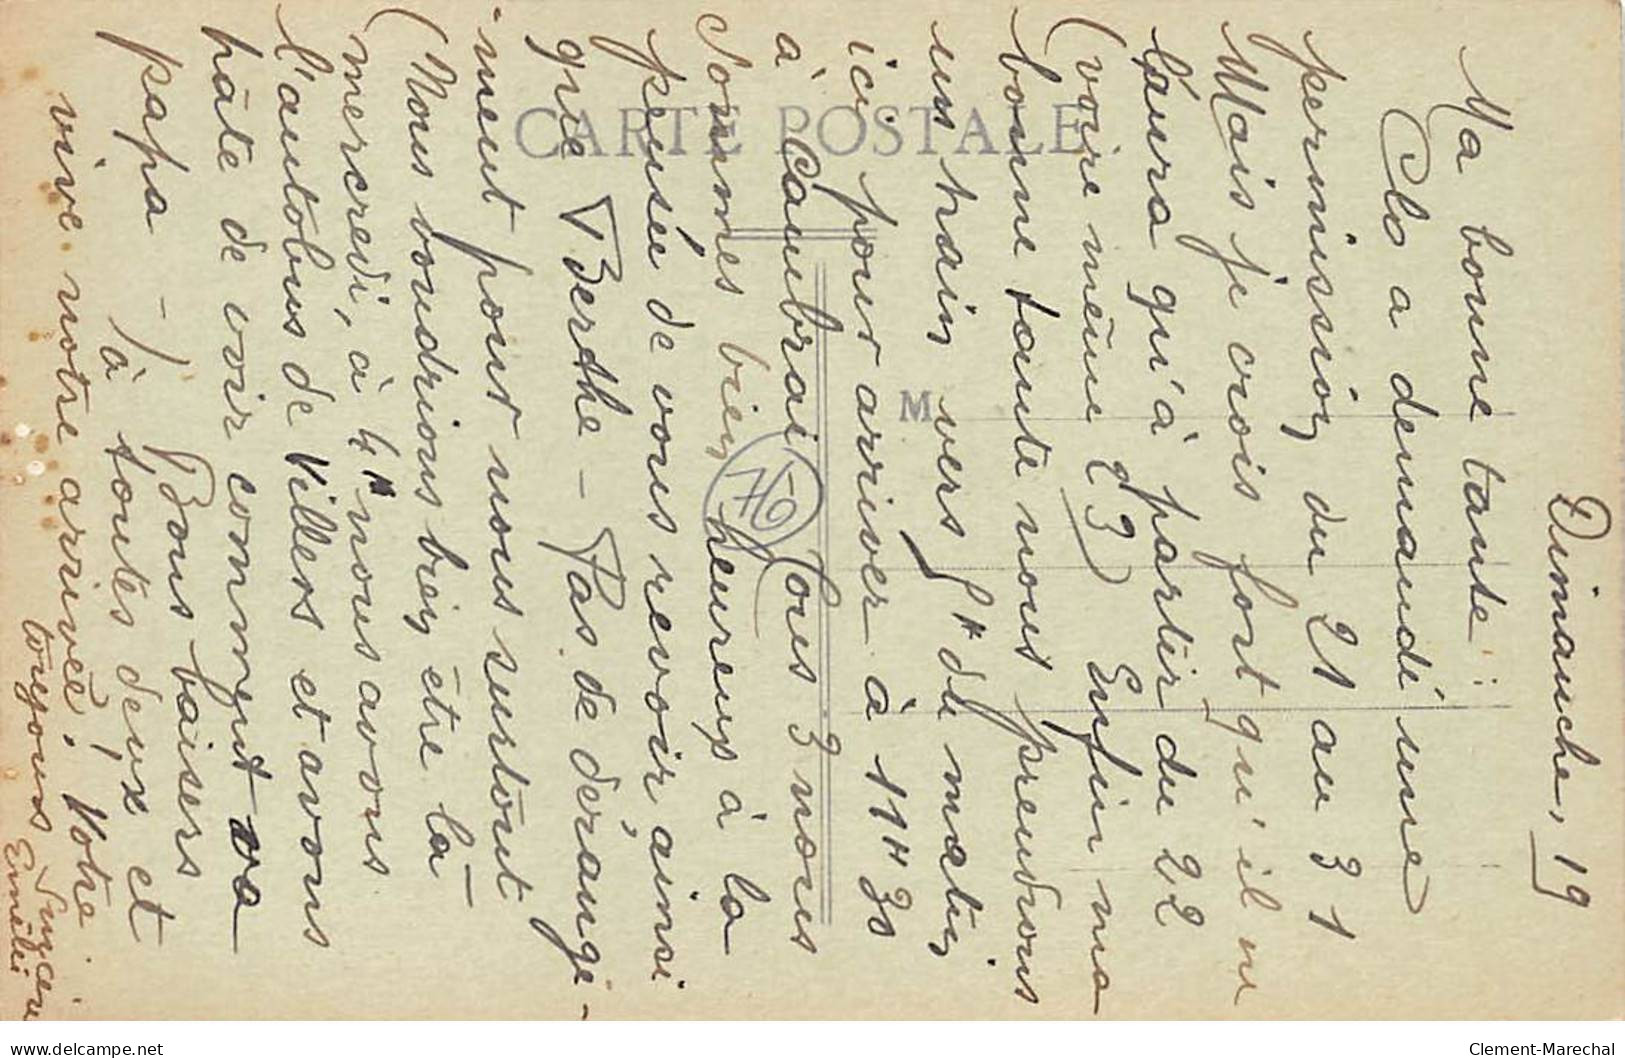 Dimanche, 19
Ma bonne tante :
Clo a demandé une
permission du 21 au 31
Mais je crois fort qu'il ne
l'aura qu'à partir du 22
(voire même 23) Enfin ma
bonne tante nous prendrons
un train vers 8H du matin
ici pour arriver à 11H30
à Cambrai. Tous 3 nous
sommes bien heureux à la
pensée de vous revoir ainsi
que Berthe - Pas de dérange-
ment pour nous surtout
(Nous voudrions bien être là
mercredi, à 4H nous avons
l'autobus de Villers et avons
hâte de voir comment va
papa -) Bons baisers
à toutes deux et
vive notre arrivée! Votre
toujours sincère
Emélie
CARTE POSTALE
M
76
delcampe.net
Clement-Marechal